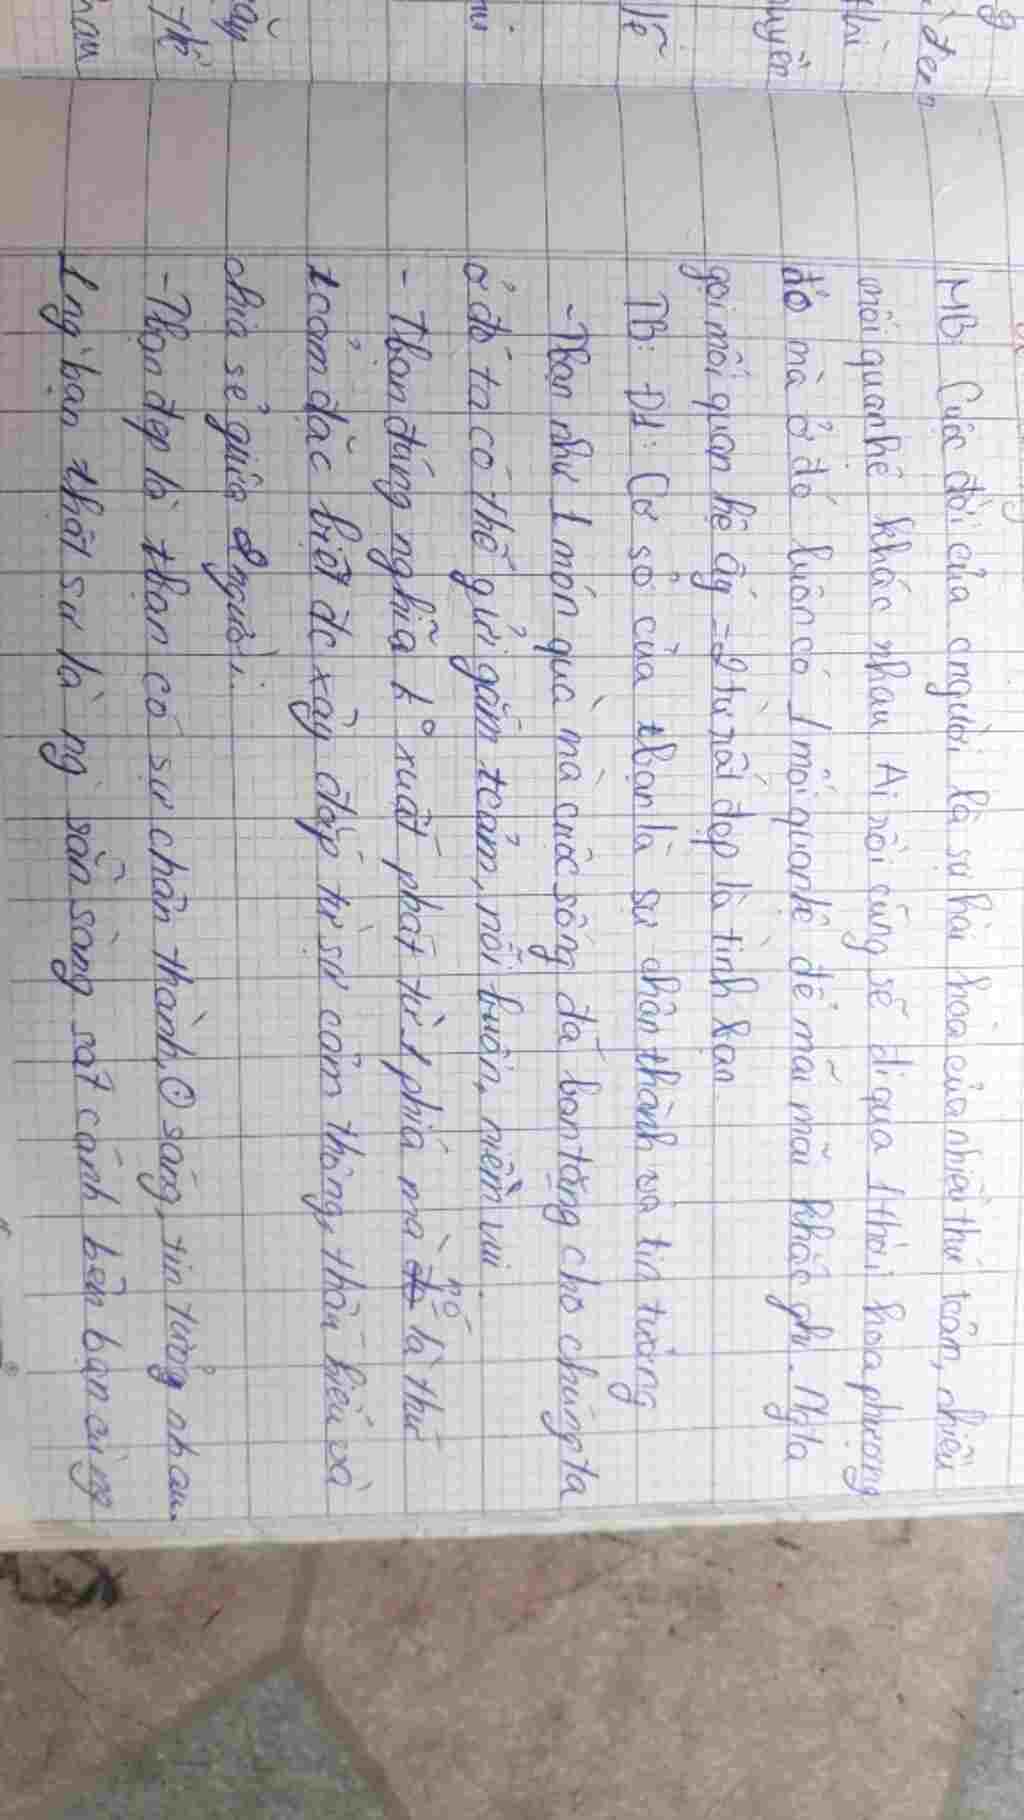 MB: Cuộc đời của cngười là sự hài hoà của nhiều thứ tcảm, nhiều
mối quan hệ khác nhau. Ai rồi cũng sẽ đi qua 1 thời hoa phượng
đỏ mà ở đó luôn có 1 mối quan hệ để mãi mãi khắc ghi. Ngta
gọi mối quan hệ ấy = 2 từ rất đẹp là tình bạn.
TB: Đ1: Cơ sở của tbạn là sự chân thành và tin tưởng
- Tbạn như 1 món quà mà cuộc sống đã ban tặng cho chúng ta
ở đó ta có thể gửi gắm tcảm, nỗi buồn, niềm vui.
- Tbạn đúng nghĩa ko xuất phát từ 1 phía mà nó là thứ
tcảm đặc biệt đc xây đắp từ sự cảm thông, thấu hiểu và
chia sẻ giữa 2 người.
- Tbạn đẹp là tbạn có sự chân thành, sáng, tin tưởng nhau.
1 ng' bạn thật sự là ng' sẵn sàng sát cánh bên bạn cùng
đen
thì
uyền
lẽ
thể
nhau